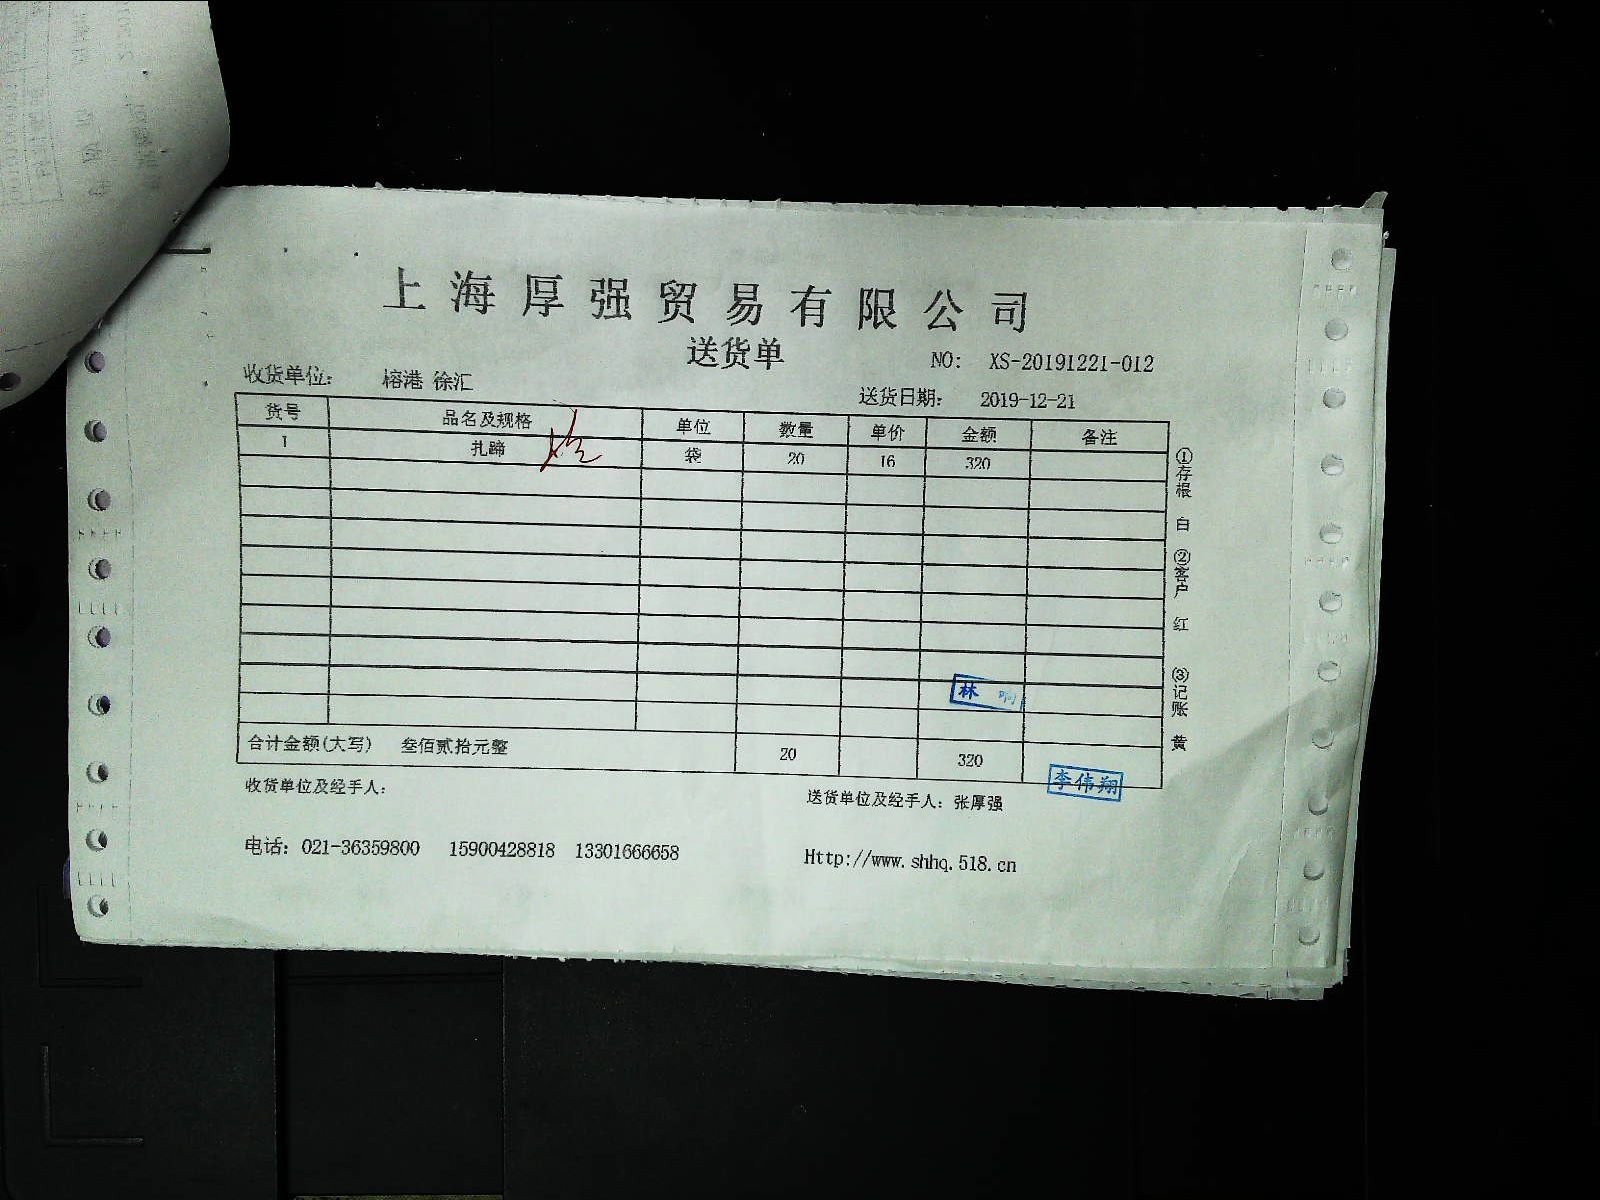 上海厚强贸易有限公司
送货单
NO: XS-20191221-012
收货单位: 榕港 徐汇
送货日期: 2019-12-21
货号 品名及规格 单位 数量 单价 金额 备注
1 扎蹄 袋 20 16 320
合计金额(大写) 叁佰贰拾元整 20 320
①存根 白 ②客户 红 ③记账 黄
林
李伟翔
收货单位及经手人:
送货单位及经手人: 张厚强
电话: 021-36359800 15900428818 13301666658
Http://www.shhq.518.cn